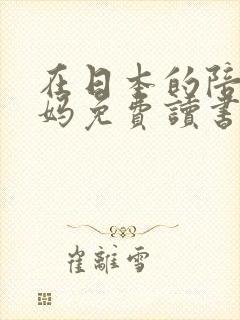 在日本的陪
妈免費讀書
崔離雪